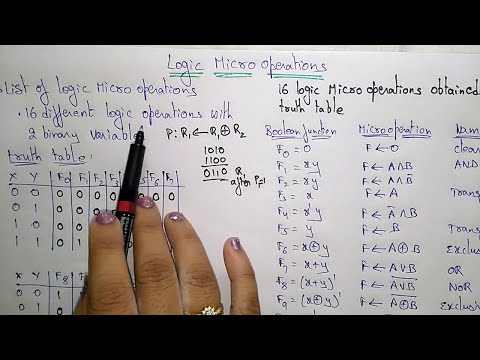 Logic Micro operations
List of logic Micro operations
• 16 different logic operations with
2 binary variable
P: R1 ← R1 ⊕ R2
1010
1100
0110 R1
after P=1
truth table:
X Y F0 F1 F2 F7
0 0 0 0 0
0 1 0 0 0
1 0 0 0
1 1 0 1
X Y F8
0 0 1
0 1
16 logic Micro operations obtained
truth table
Boolean function Micro operation Nam
F0 = 0 F ← 0 clea
F1 = xy F ← A∧B AND
F2 = xy' F ← A∧B̅
F3 = x F ← A Trans
F4 = x'y F ← A̅∧B
F5 = y F ← B Trans
F6 = x⊕y F ← A⊕B Exclus
F7 = x+y F ← A∨B OR
F8 = (x+y)' F ← A∨B̅ NOR
F9 = (x⊕y)' F ← A⊕B̅ Exclusi